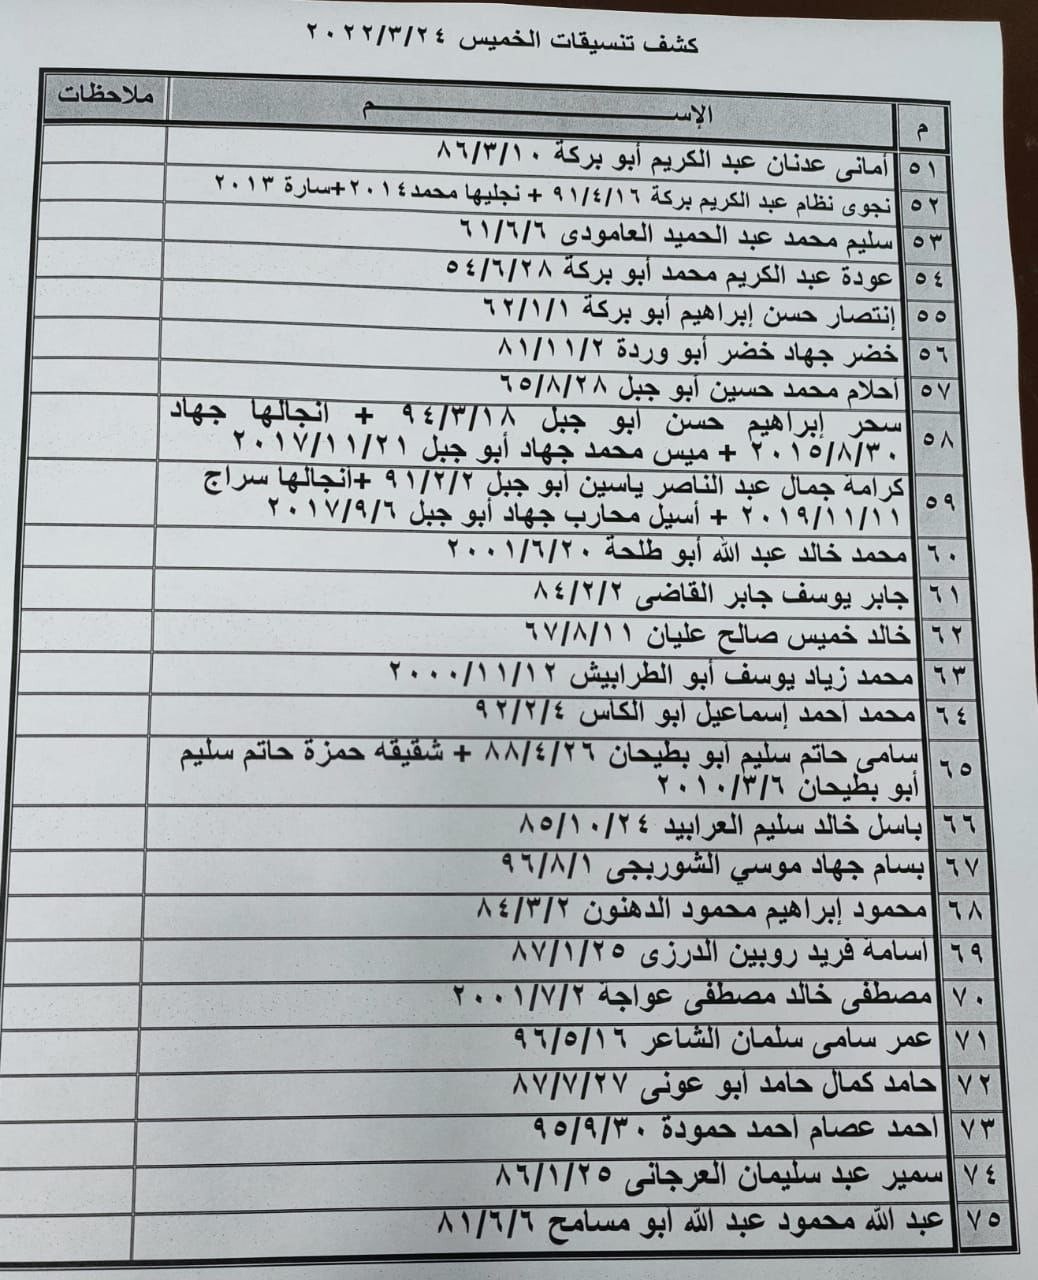 كشف تنسيقات الخميس ٢٠٢٢/٣/٢٤
م الإســـــم ملاحظات
٥١ أمانى عدنان عبد الكريم أبو بركة ٨٦/٣/١٠
٥٢ نجوى نظام عبد الكريم بركة ٩١/٤/١٦ + نجليها محمد٢٠١٤+سارة ٢٠١٣
٥٣ سليم محمد عبد الحميد العامودى ٦١/٦/٦
٥٤ عودة عبد الكريم محمد أبو بركة ٥٤/٦/٢٨
٥٥ إنتصار حسن إبراهيم أبو بركة ٦٢/١/١
٥٦ خضر جهاد خضر أبو وردة ٨١/١١/٢
٥٧ أحلام محمد حسين أبو جبل ٦٥/٨/٢٨
٥٨ سحر إبراهيم حسن أبو جبل ٩٤/٣/١٨ + أنجالها جهاد
٢٠١٥/٨/٣٠ + ميس محمد جهاد أبو جبل ٢٠١٧/١١/٢١
٥٩ كرامة جمال عبد الناصر ياسين أبو جبل ٩١/٢/٢ +أنجالها سراج
٢٠١٩/١١/١١ + أسيل محارب جهاد أبو جبل ٢٠١٧/٩/٦
٦٠ محمد خالد عبد الله أبو طلحة ٢٠٠١/٦/٢٠
٦١ جابر يوسف جابر القاضى ٨٤/٢/٢
٦٢ خالد خميس صالح عليان ٦٧/٨/١١
٦٣ محمد زياد يوسف أبو الطرابيش ٢٠٠٠/١١/١٢
٦٤ محمد أحمد إسماعيل أبو الكاس ٩٢/٢/٤
٦٥ سامى حاتم سليم أبو بطيحان ٨٨/٤/٢٦ + شقيقه حمزة حاتم سليم
أبو بطيحان ٢٠١٠/٣/٦
٦٦ باسل خالد سليم العرابيد ٨٥/١٠/٢٤
٦٧ بسام جهاد موسي الشوربجى ٩٦/٨/١
٦٨ محمود إبراهيم محمود الدهنون ٨٤/٣/٢
٦٩ أسامة فريد روبين الدرزى ٨٧/١/٢٥
٧٠ مصطفى خالد مصطفى عواجة ٢٠٠١/٧/٢
٧١ عمر سامى سلمان الشاعر ٩٦/٥/١٦
٧٢ حامد كمال حامد أبو عونى ٨٧/٧/٢٧
٧٣ أحمد عصام أحمد حمودة ٩٥/٩/٣٠
٧٤ سمير عبد سليمان العرجانى ٨٦/١/٢٥
٧٥ عبد الله محمود عبد الله أبو مسامح ٨١/٦/٦